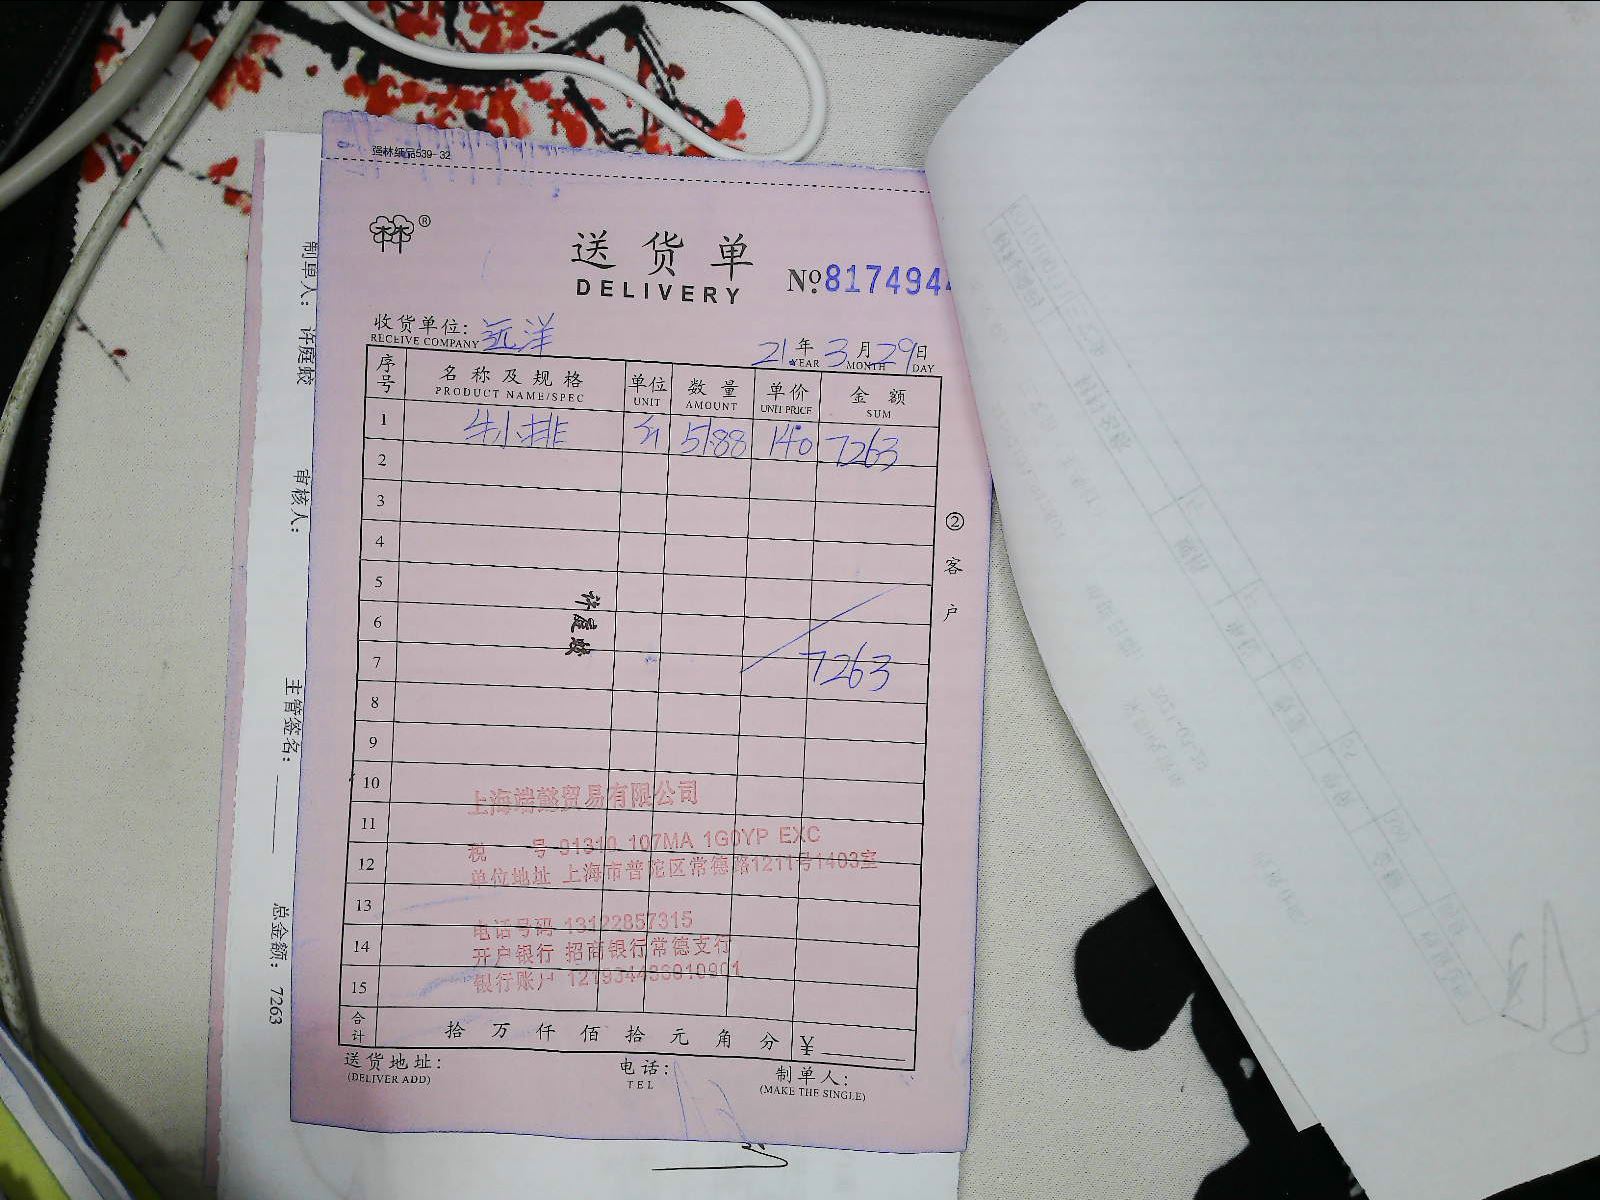 强林纸品539-32
林®
送货单
DELIVERY
№ 8174944
收货单位: 远洋
RECEIVE COMPANY
21年 3月 29日
YEAR MONTH DAY
序号 名称及规格 单位 数量 单价 金额
PRODUCT NAME/SPEC UNIT AMOUNT UNIT PRICE SUM
1 牛小排 斤 51.88 140 7263
2
3
4
5
6
7 7263
许庭蛟
8
9
10
上海端懿贸易有限公司
11
税 号 91310 107MA 1G0YP EXC
12
单位地址 上海市普陀区常德路1211号1403室
13
电话号码 13122857315
14
开户银行 招商银行常德支行
银行账户 121934433010901
15
合计 拾 万 仟 佰 拾 元 角 分 ¥
送货地址: 电话: 制单人:
(DELIVER ADD) TEL (MAKE THE SINGLE)
②客户
制单人: 许庭蛟
审核人:
主管签名:
总金额: 7263